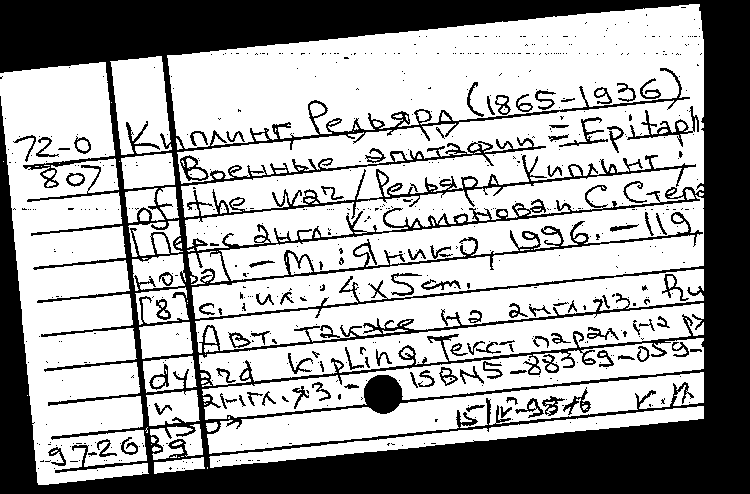 72-0 Киплинг, Редьярд (1865-1936)
807 Военные эпитафии = Epitaphs
of the war / Редьярд Киплинг;
[Пер. с англ. К. Симонова и С. Степа
нова]. - М. : Янико, 1996. - 119,
[8] с. : ил. ; 4x5 cm.
Авт. также на англ. яз.: Ru
dyard Kipling. Текст парал. на ру
и англ. яз. - ISBN 5-88369-059-
97-2089